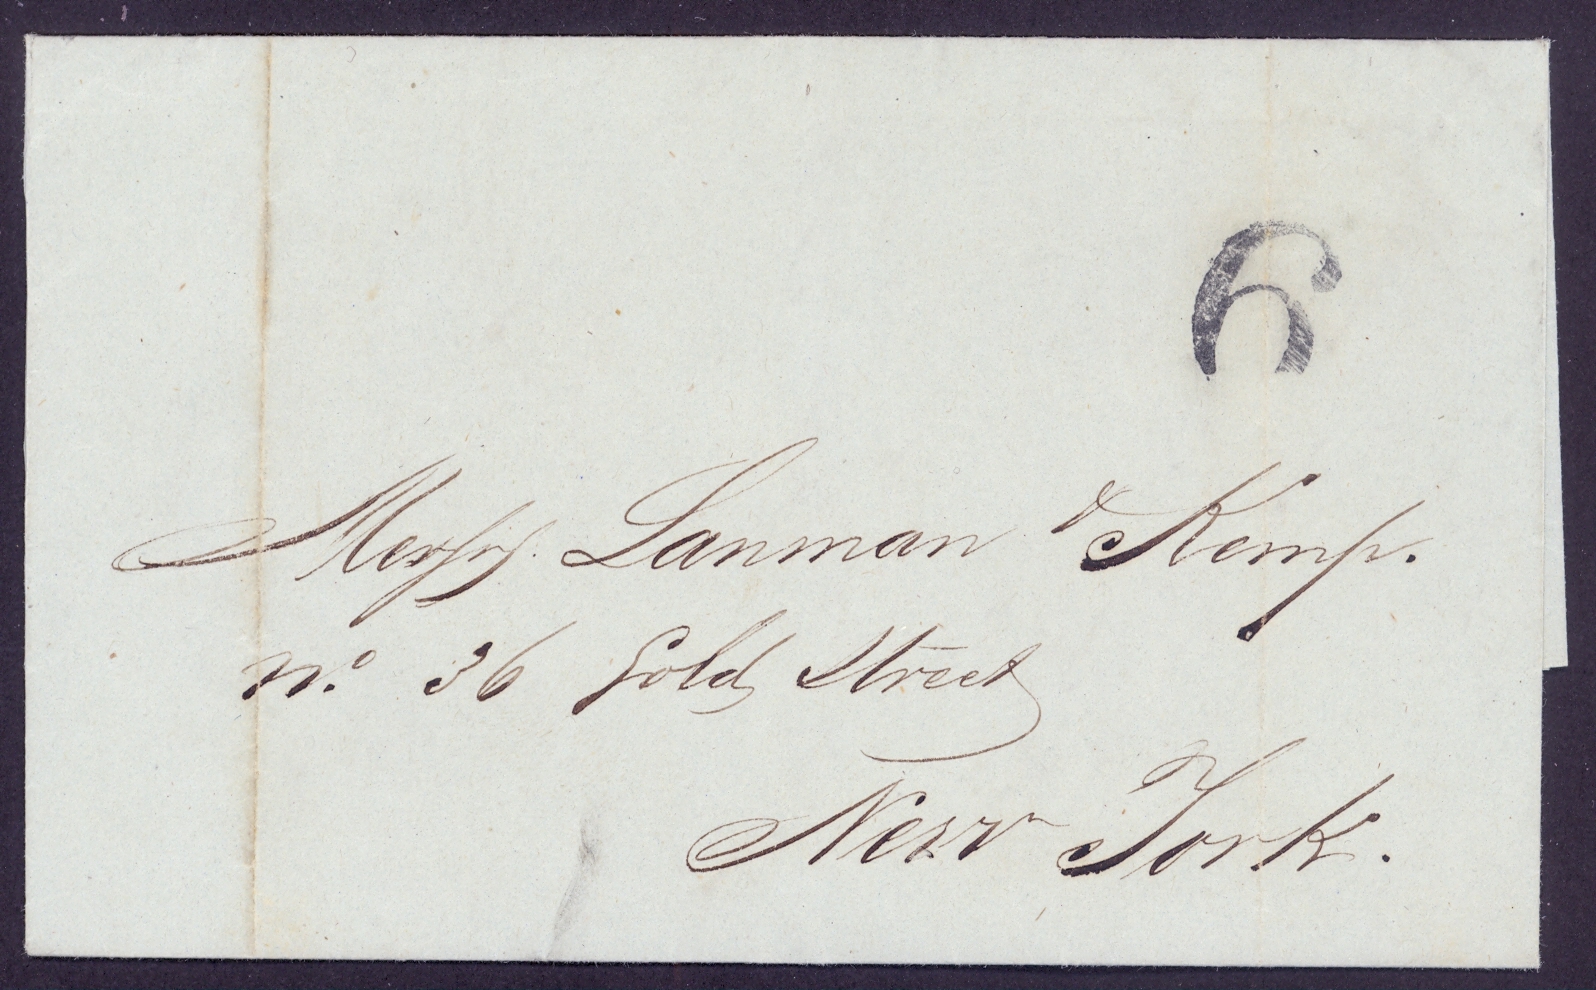 6
Messrs. Lanman & Kemp.
No. 36 Gold Street
New York.